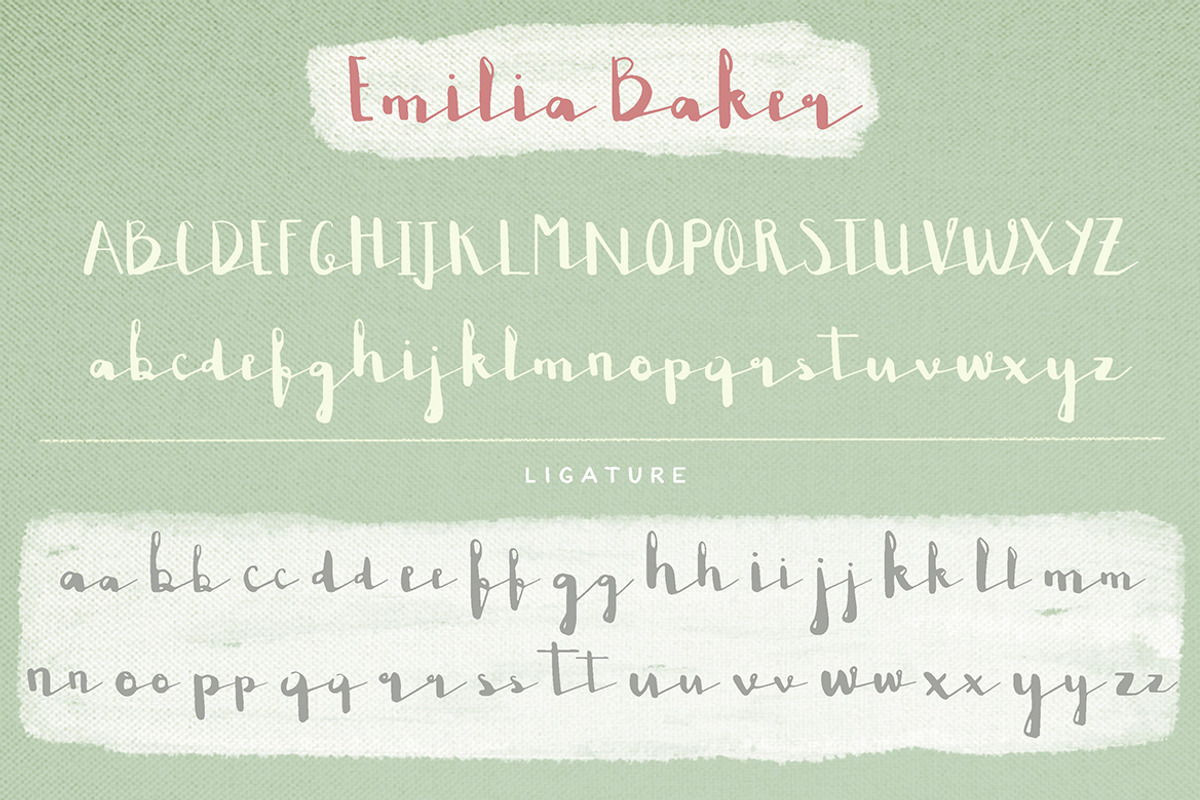 Emilia Baker
ABCDEFGHIJKLMNOPQRSTUVWXYZ
abcdefghijklmnopqrstuvwxyz
LIGATURE
aa bb cc dd ee ff gg hh ii jj kk ll mm
nn oo pp qq rr ss tt uu vv ww xx yy zz